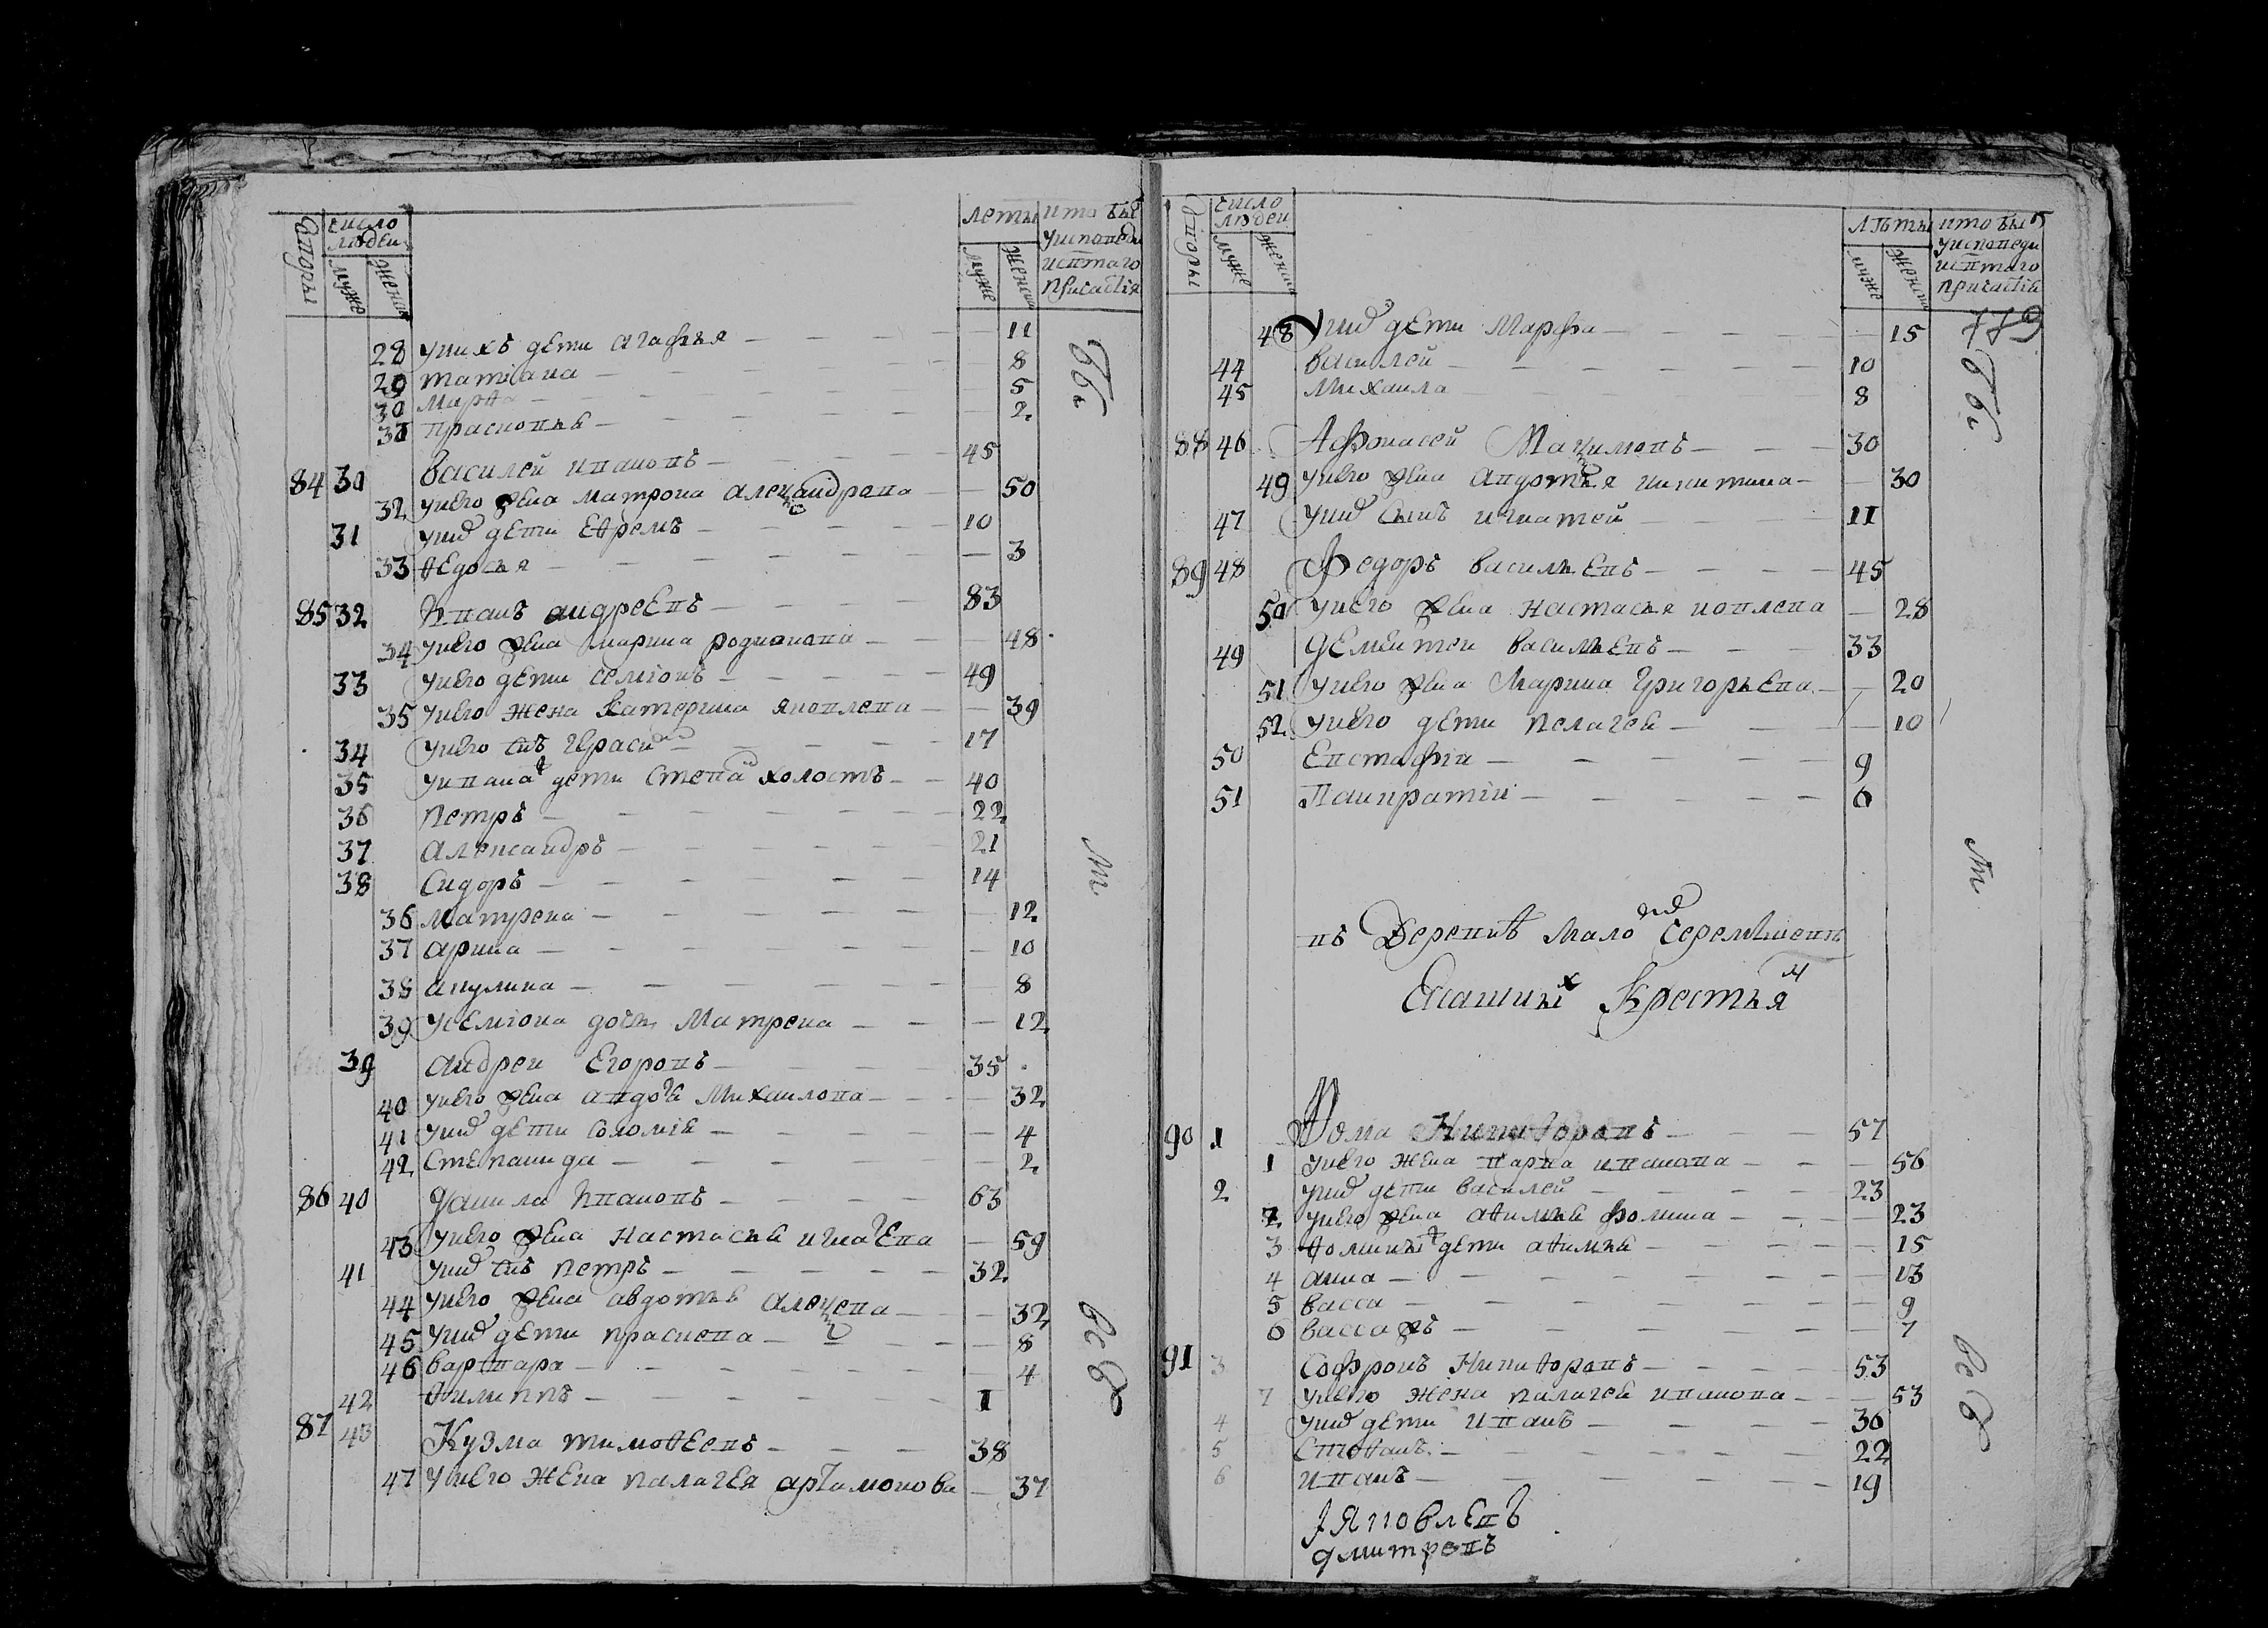 Дворы число людеи муже женска леты муже женска кто былъ у исповеди и свтаго причастія
28 у нихъ дети агафья 11
29 татіана 8
30 марѳа 5
31 прасковья 2
84 30 василеи ивановъ 45
32 у него жена матрона александрова 50
31 у них дети еѳремъ 10
33 ѳедосья 3
85 32 Иванъ андреевъ 83
34 у него жена марина родионова 48
33 у него дети семіонъ 49
35 у него жена катерина яковлева 39
34 у него снъ гераси 17
35 у ивана дети степа холостъ 40
36 петръ 22
37 александръ 21
38 сидоръ 14
36 матрена 12
37 арина 10
38 акулина 8
39 у семіона дочь матрена 12
39 андреи егоровъ 35
40 у него жена авдотя михаилова 32
41 у них дети соломія 4
42 степанида 2
86 40 данила ивановъ 63
43 у него жена настасья игнатева 59
41 у них снъ петръ 32
44 у него жена авдотья алексева 32
45 у них дети прасковя 8
46 варвара 4
42 ѳилиппъ 1
87 43 Кузма тимоѳеевъ 38
47 у него жена палагея артамонова 37
бы
т.
всѣ
Дворы число людеи муже женска лѣты муже женска кто былъ у исповеди и свтаго причастія
779
48 у них дети марфа 15
44 василеи 10
45 михаила 8
88 46 Афонасеи Максимовъ 30
49 у него жена авдотья никитина 30
47 у них сынъ игнатеи 11
89 48 Федоръ васильевъ 45
50 у него жена настасья иовлева 28
49 дементеи васильевъ 33
51 у него жена марина григорьева 20
52 у него дети пелагея 10
50 евстафіи 9
51 Панкратіи 6
въ Деревнѣ мало
Ясашных Крестья
90 1 Ѳома Никиѳоровъ 57
1 у него жена варвара иванова 56
2 у них дети василеи 23
2 у него жена аѳимья фомина 23
3 ѳомины дети аѳимья 15
4 анна 13
5 васса 9
6 васса жъ 7
91 3 Софронъ Никиѳоровъ 53
7 у него жена палагея иванова 53
4 у них дети иванъ 36
5 стеѳанъ 22
6 иванъ 19
іяковлевъ
дмитревъ
бы
т.
всѣ